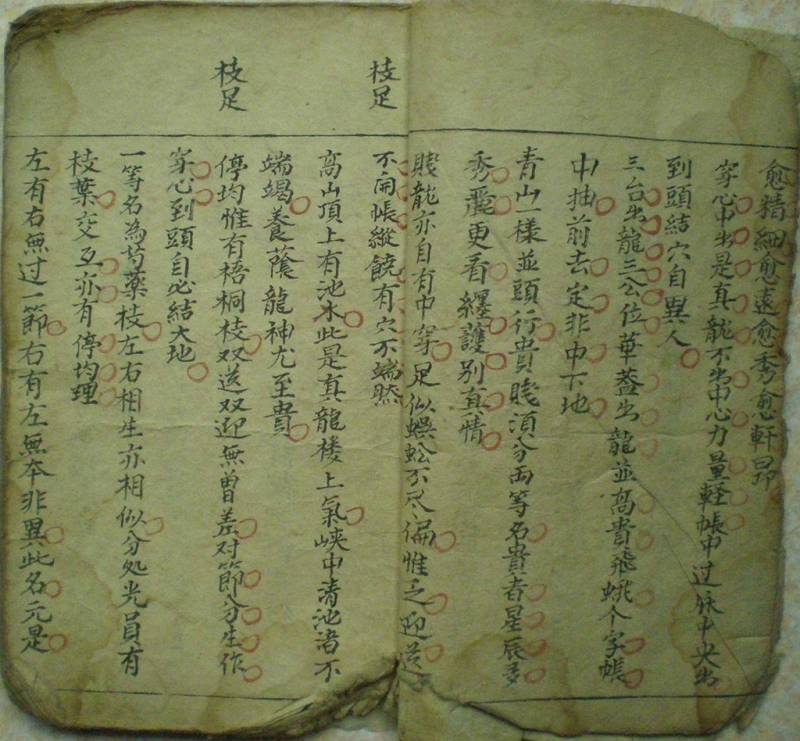 愈精細愈遠愈秀愈軒昂
穿心中出是真龍不出中心力量軽帳中过脉中央出
到頭結穴自異人
三台出龍三公位華蓋出龍並高貴飛蛾个字帳
中抽前去定非中下地
青山一樣並頭行貴賤須分両等名貴者星辰多
秀麗更看纏護别真情
賤龍亦自有中穿足似蜈蚣不尽偏惟乏迎送
不開帳縱饒有穴不端然
枝足
高山頂上有池水此是真龍楼上氣峽中清池渚不
端竭養蔭龍神尤至貴
枝足
停均惟有梧桐枝双送双迎無曽差对節分生作
穿心到頭自必結大地
一等名為芍藥枝左右相生亦相似分処光員有
枝葉交互亦有停均理
左有右無过一節右有左無本非異此名元是